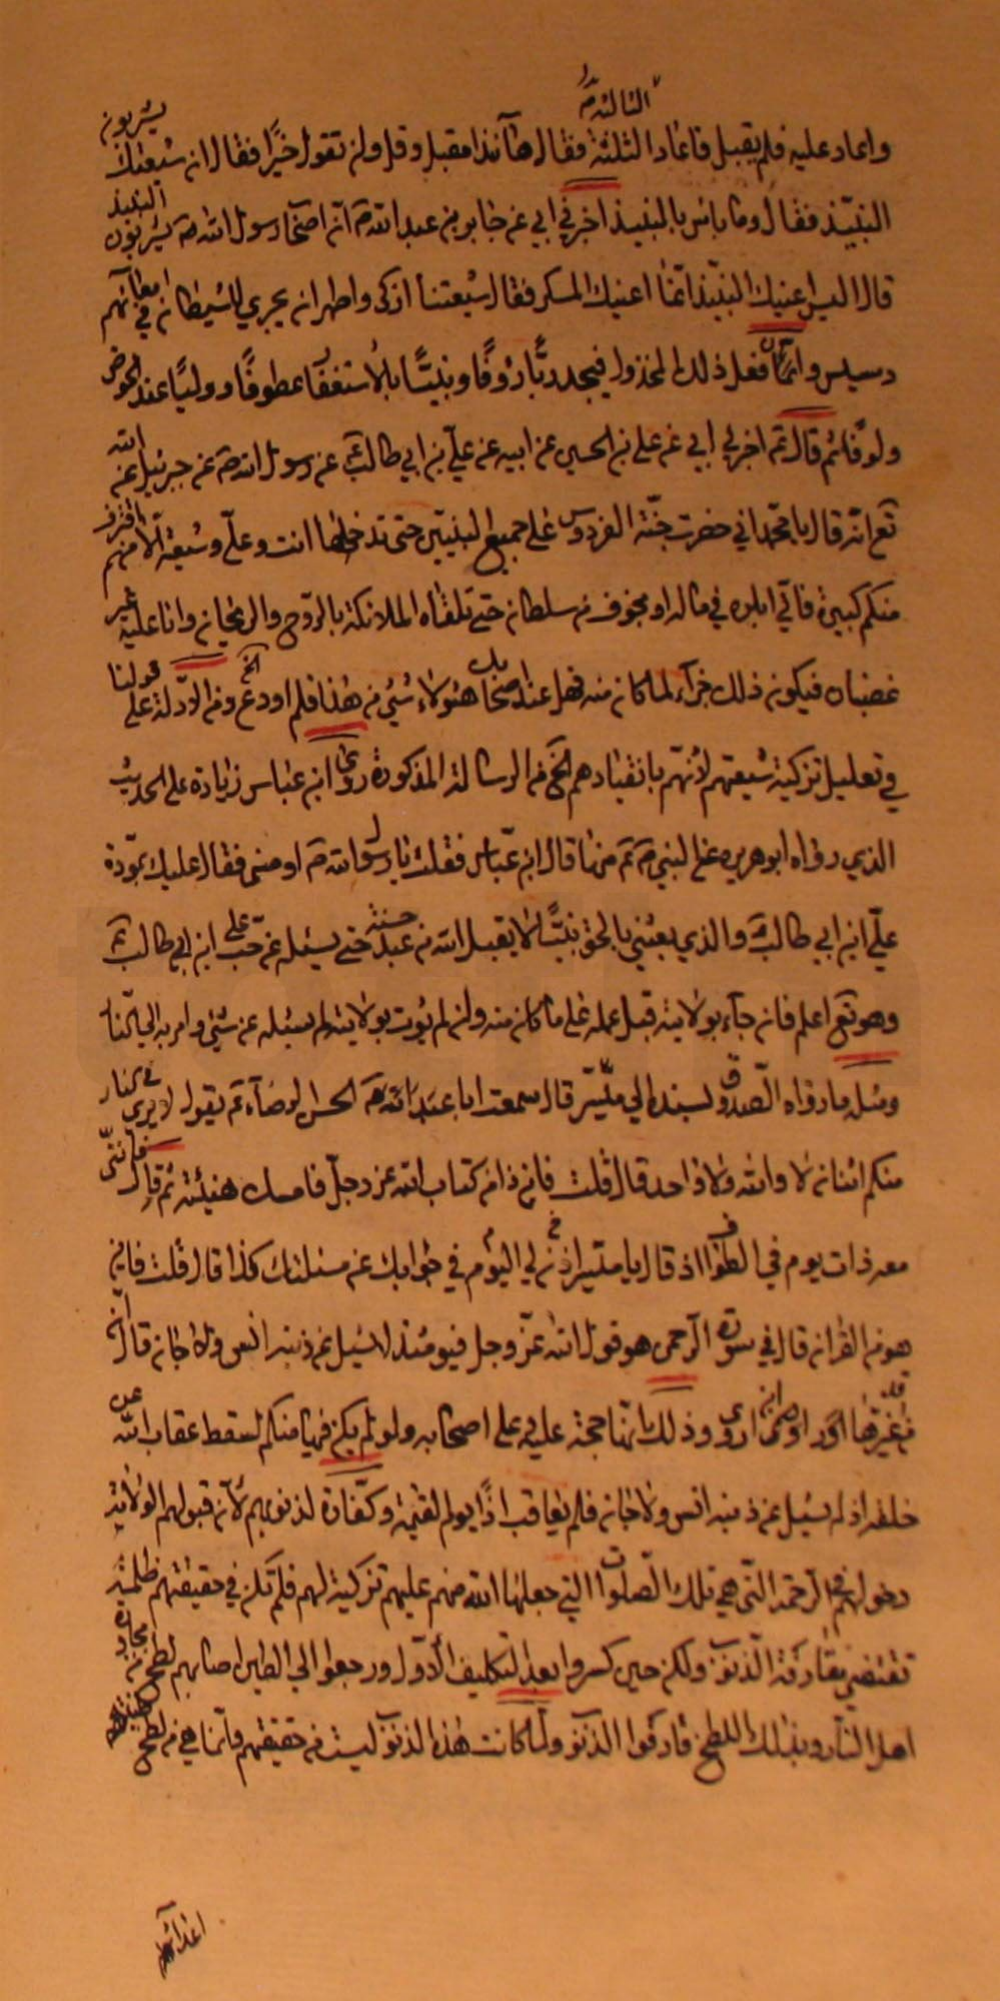 الثالثة
واعاد عليه فلم يقبل فاعاد الثلثة فقال هاآنذا مقبل وقل ولن تقول خيرًا فقال ان شيعتك يشربون
النبيذ فقال وما باس بالنبيذ اخبرني ابي عن جابر بن عبد الله ان اصحاب رسول الله ص يشربون النبيذ
قال ليس اعنيك النبيذ انما اعنيك المسكر فقال شيعتنا ازكى واطهر ان يجري للشيطان في امعائهم
رسيس وان فعل ذلك المخذول فيجد ربًّا رؤفًا ونبيًّا بالاستغفار عطوفًا ووليًا عند الحوض
ولوفا ثم قال اخبرني ابي عن علي بن الحسين عن ابيه عن علي بن ابي طالب عن رسول الله ص عن جبرئيل عن الله
تع انه قال يا محمد اني حضرت جنة الفردوس على جميع النبيين حتى تدخلها انت وعلي وشيعته الا من اقترف
منكم كبيرة فاني ابلوه في ماله او بخوف من سلطانه حتى تلقاه الملائكة بالروح والريحان وانا عليه غير
غضبان فيكون ذلك جزاء لما كان منه فهل عند اصحابك هؤلاء شيء من هذا فلم او دع الخ ومن الادلة على قولنا
في تعليل تزكية شيعتهم لانهم بانقيادهم الخ من الرسالة المذكورة روى ابن عباس زيادة على الحديث
الذي رواه ابو هريره عن النبي ص منها قال ابن عباس فقلت يا رسول الله ص اوصني فقال عليك بمودة
علي ابن ابي طالب والذي بعثني بالحق نبيًّا لا يقبل الله من عبد حسنة حتى يسئله عن حب علي ابن ابي طالب
وهو تع اعلم فان جاء بولايته قبل عمله على ما كان منه وان لم يؤت بولايته لم يسئله عن شيء وامر به الى النار
ومثله ما رواه الصدوق بسنده الى ميسر قال سمعت ابا الحسن الرضا ع يقول لا يرى في النار
منكم اثنان لا والله ولا واحد قال قلت فاين ذا من كتاب الله عز وجل فامسك هنيئة ثم قال فانني
معه ذات يوم في الطواف اذ قال يا ميسر اذن لي اليوم في جوابك عن مسئلتك كذا قال قلت فاين
هو من القران قال في سورة الرحمن هو قول الله عز وجل فيومئذ لا يسئل عن ذنبه انس ولا جان قال
غيرها ابن اروى وذلك انها حجة عليه وعلى اصحابه ولو لم يكن فيها منكم لسقط عقاب الله عن
خلقه اذ لم يسئل عن ذنبه انس ولا جان فلم يعاقب اذًا يوم القيمة وكفارة لذنوبهم لان قبولهم الولاية
دخولهم في الرحمة التي هي تلك الصلوات التي جعلها الله منهم عليهم تزكية لهم فلم تكن في حقيقتهم ظلمة
تقتضي مقارفة الذنوب ولكن حين كسروا بعد التكليف الاول ورجعوا الى الطين اصابهم لطخ من مجاورة
اهل النار وبذلك اللطخ قارفوا الذنوب ولما كانت هذه الذنوب ليست من حقيقتهم وانما هي من لطخ
اعدائهم